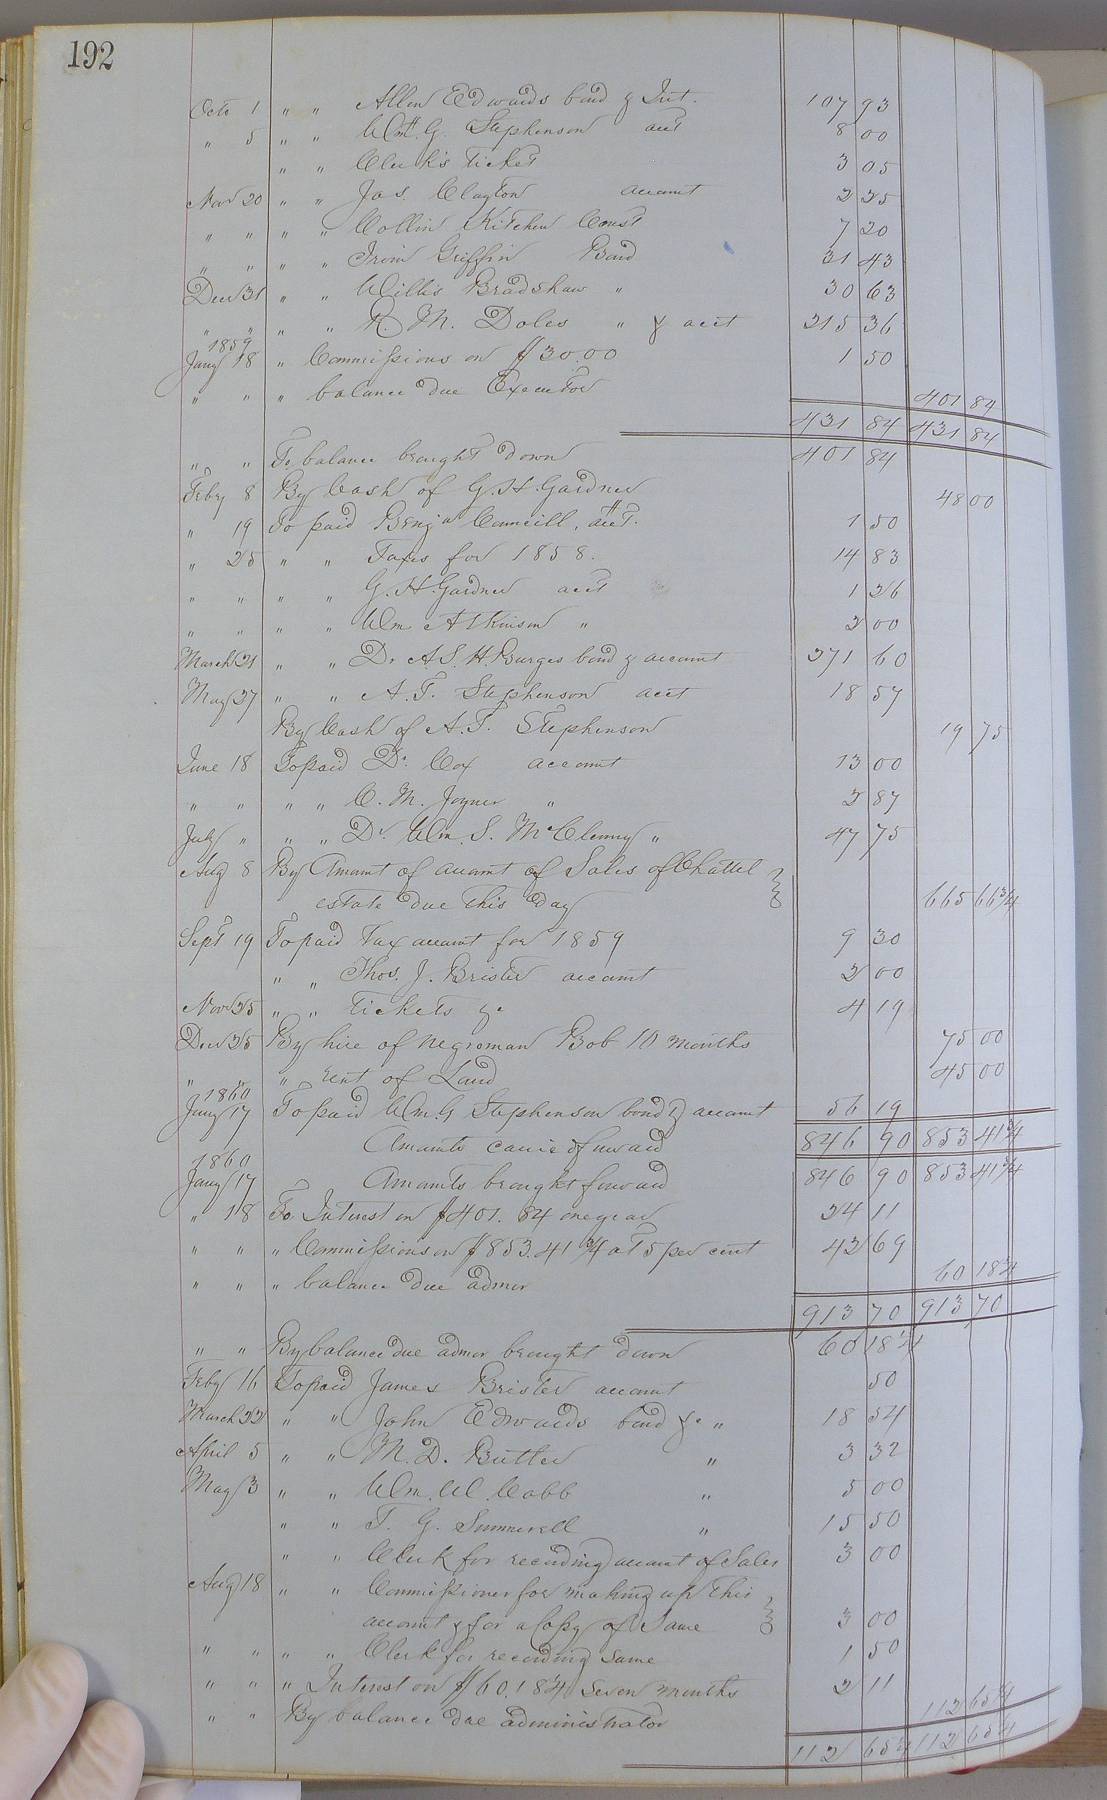 192
Octo 1 " " Allen Edwards bond & Int. 107 93
" 5 " " Wm. G. Stephenson acct 8 00
" " Clerk's Ticket 3 05
Nov 20 " " Jas. Clayton account 2 25
" " " " Collin Kitchen Const 7 20
" " " " Irvin Griffin Bond 31 43
Decr 31 " " Willis Bradshaw " 30 63
" " " " R. M. Doles " & acct 215 36
1859
Jany 18 " Commissions on $30.00 1 50
" " " balance due Executor 401 84
431 84 431 84
" " To balance brought down 401 84
Feby 8 By Cash of G. H. Gardner 48 00
" 19 To paid Benja Councill, acct. 1 50
" 25 " " Taxes for 1858. 14 83
" " " " G. H. Gardner acct 1 26
" " " " Wm Atkinson " 2 00
March 21 " " Dr A. S. H. Burges bond & account 271 60
May 27 " " A. T. Stephenson acct 18 57
By Cash of A. T. Stephenson 19 75
June 18 To paid Dr. Cox account 13 00
" " " " C. M. Joyner " 2 87
July " " " Dr. Wm. S. McClenny " 47 75
Aug 8 By Amount of account of Sales of Chattel
estate due this day 665 66 3/4
Sept 19 To paid Tax account for 1859 9 30
" " Thos. J. Brister account 2 00
Nov 25 " " Tickets &c 4 19
Decr 25 By hire of negroman Bob 10 months 75 00
" " " rent of Land 45 00
1860
Jany 17 To paid Wm. G Stephenson bond & account 56 19
Amounts carried forward 846 90 853 41 3/4
1860
Jany 17 Amounts brought forward 846 90 853 41 3/4
" 18 To Interest on $401.84 one year 24 11
" " " Commissions on $853.41 3/4 at 5 per cent 42 69
" " " balance due admor 60 18 1/4
913 70 913 70
" " By balance due admor brought down 60 18 1/4
Feby 16 To paid James Brister account 50
March 22 " " John Edwards bond &c " 18 54
April 5 " " M. D. Butler " 3 32
May 3 " " Wm. W. Cobb " 5 00
" " T. G. Summerell " 15 50
" " Clerk for recording account of Sales 3 00
Aug 18 " " Commissioner for making up this
account & for a Copy of Same 3 00
" " " " Clerk for recording Same 1 50
" " " Interest on $60.18 1/4 seven months 2 11
" " By balance due administrator 112 65 1/4
112 65 1/4 112 65 1/4